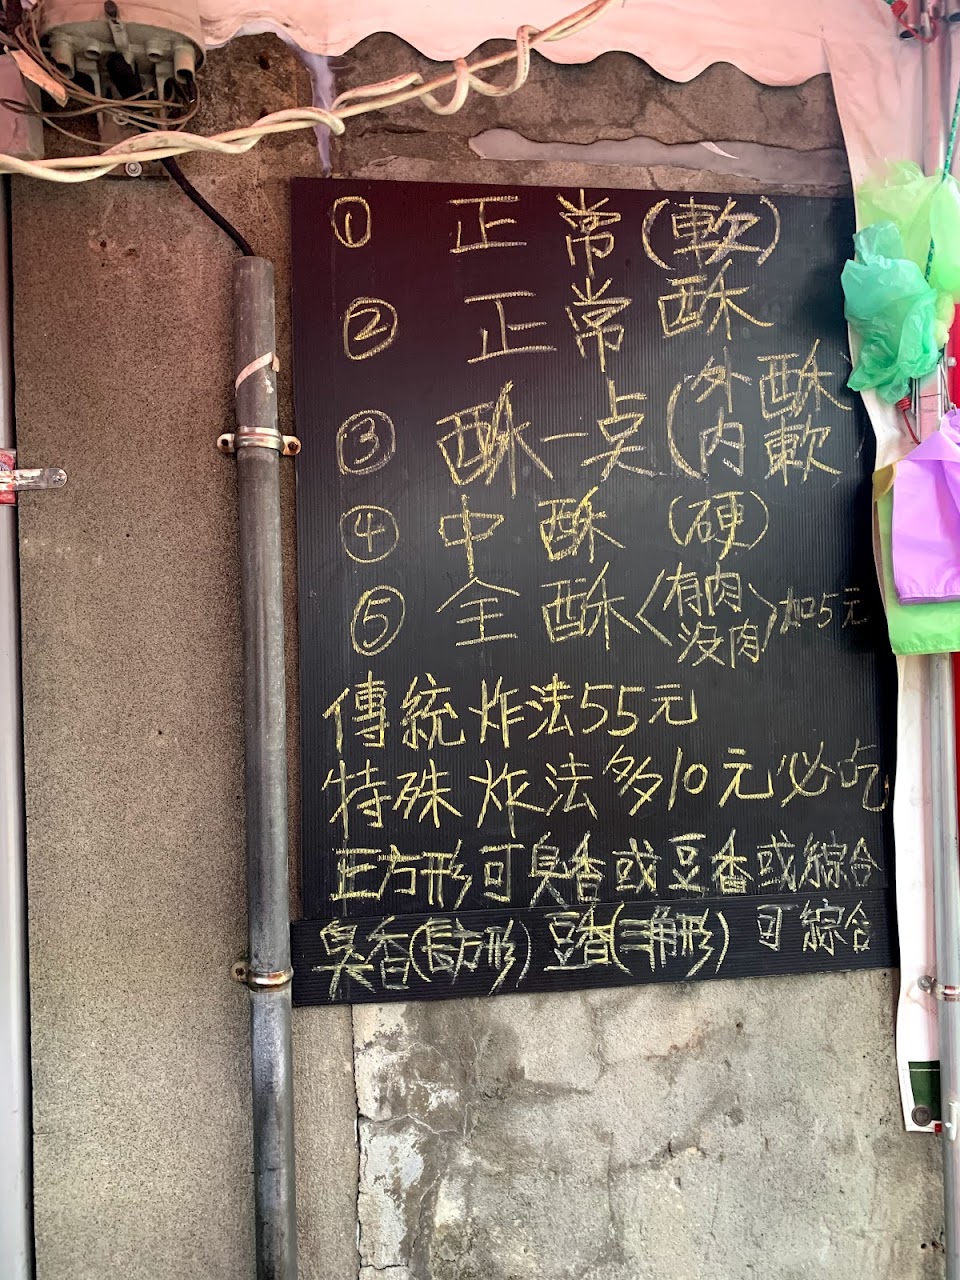 ① 正常(軟)
② 正常酥
③ 酥一点(外酥
內軟
④ 中酥(硬)
⑤ 全酥〈有肉
没肉〉加5元
傳統炸法55元
特殊炸法多10元必吃
正方形可臭香或豆香或綜合
臭香(長方形) 豆香(三角形) 可綜合